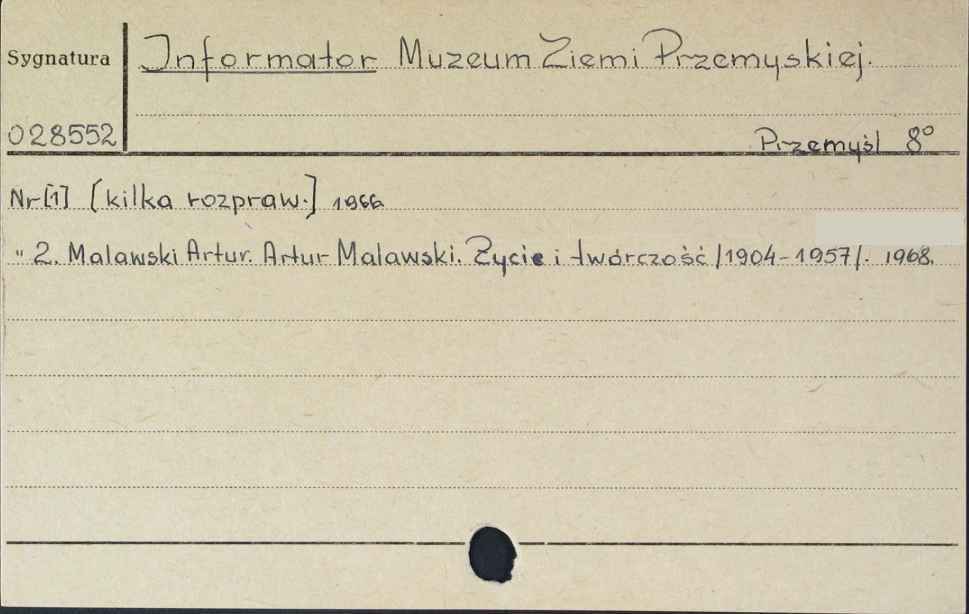 Sygnatura
Informator Muzeum Ziemi Przemyskiej.
028552
Przemyśl 8°
Nr [1] [kilka rozpraw.] 1966
" 2. Malawski Artur. Artur Malawski. Życie i twórczość /1904-1957/. 1968.